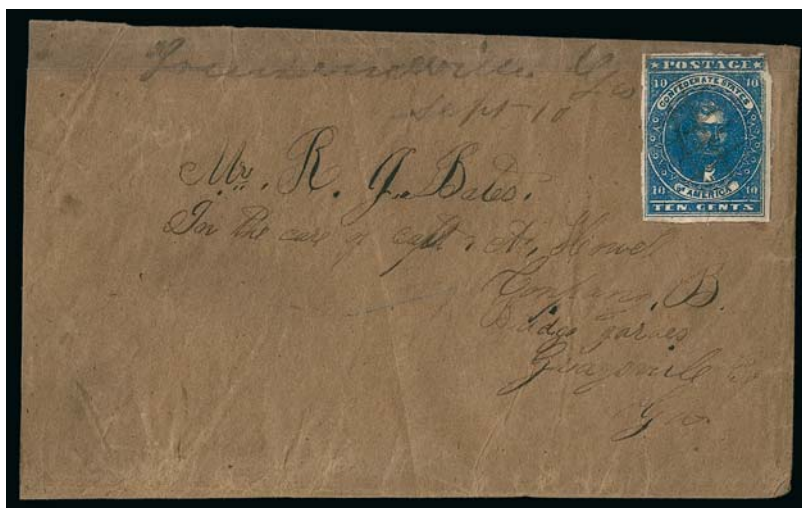 Sept 10
POSTAGE
10 10
CONFEDERATE STATES
OF AMERICA
10 10
TEN CENTS
Mr. R. J. Bates.
In the care of capt. A, Howel
Company, B.
Ga.